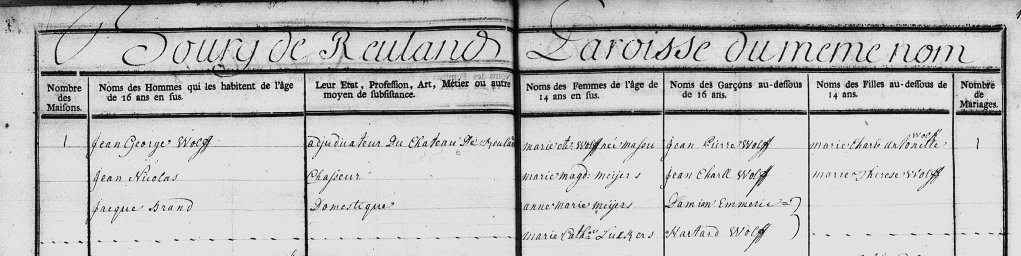 Bourg de Reuland Paroisse du meme nom
Nombre des Maisons.
Noms des Hommes qui les habitent de l'âge de 16 ans en sus.
Leur Etat, Profession, Art, Métier ou autre moyen de subsistance.
Noms des Femmes de l'âge de 14 ans en sus.
Noms des Garçons au-dessous de 16 ans.
Noms des Filles au-dessous de 14 ans.
Nombre de Mariages.
1 Jean George Wolff adjudicateur Du Chateau De Reuland marie Wolff née Jean Pierre Wolff marie Charle Antonille Wolff 1
Jean Nicolas Chasseur marie magd: meijers Jean Charle Wolff marie Therese Wolff
Jacque Brand Domestique anne marie meijers Damien Emmerie
marie Cath: Hartard Wolff